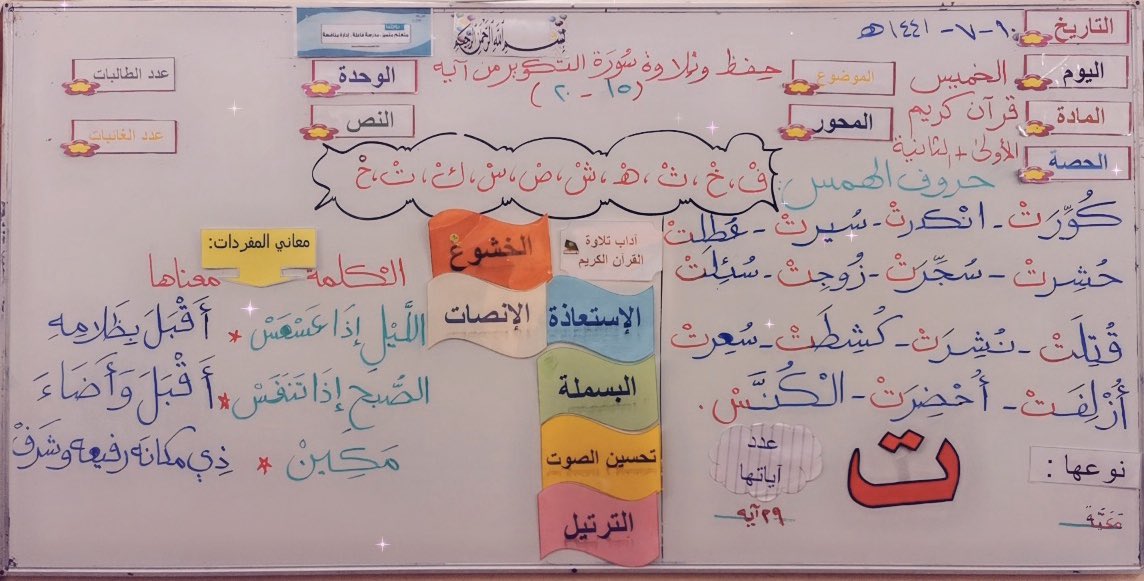 بسم الله الرحمن الرحيم
التاريخ
١٠-٧-١٤٤١هـ
اليوم
الخميس
المادة
قرآن كريم
الحصة
الأولى + الثانية
الموضوع
حفظ وتلاوة سورة التكوير من آية
(١٥ - ٢٠)
المحور
الوحدة
النص
عدد الطالبات
عدد الغائبات
حروف الهمس:
فْ، حْ، ثْ، هْـ، شْ، خْ، صْ، سْ، كْ، تْ
كُوِّرَتْ - انْكدرتْ - سُيرتْ - عُطِلتْ
حُشِرتْ - سُجِّرَتْ - زُوِجتْ - سُئِلتْ
قُتِلَتْ - نُشِرَتْ - كُشِطَتْ - سُعِرتْ
أُزْلِفَتْ - أُحْضِرَتْ - الْكُنَّسْ.
نوعها:
مَكيَّة
ت
عدد
آياتها
٢٩ آية
آداب تلاوة
القرآن الكريم
الخشوع
الإستعاذة
الإنصات
البسملة
تحسين الصوت
الترتيل
معاني المفردات:
الكلمة
معناها
اللَّيْلِ إِذَا عَسْعَسْ * أَقْبَلَ بِظَلامِهِ
الصُّبحِ إِذَا تَنَفَسْ * أَقْبَلَ وَأَضَاءَ
مَكِينْ * ذِي مكانَه رفيعه وشَرَفْ